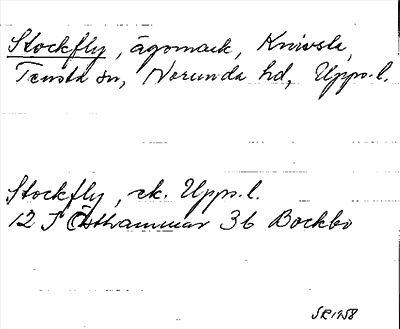 Stockfly, ägomark, Knivsta,
Tensta sn, Norunda hd, Upps.l.
Stockfly, ek. Upps.l.
12 I Östhammar 36 Bockbo
SR1958